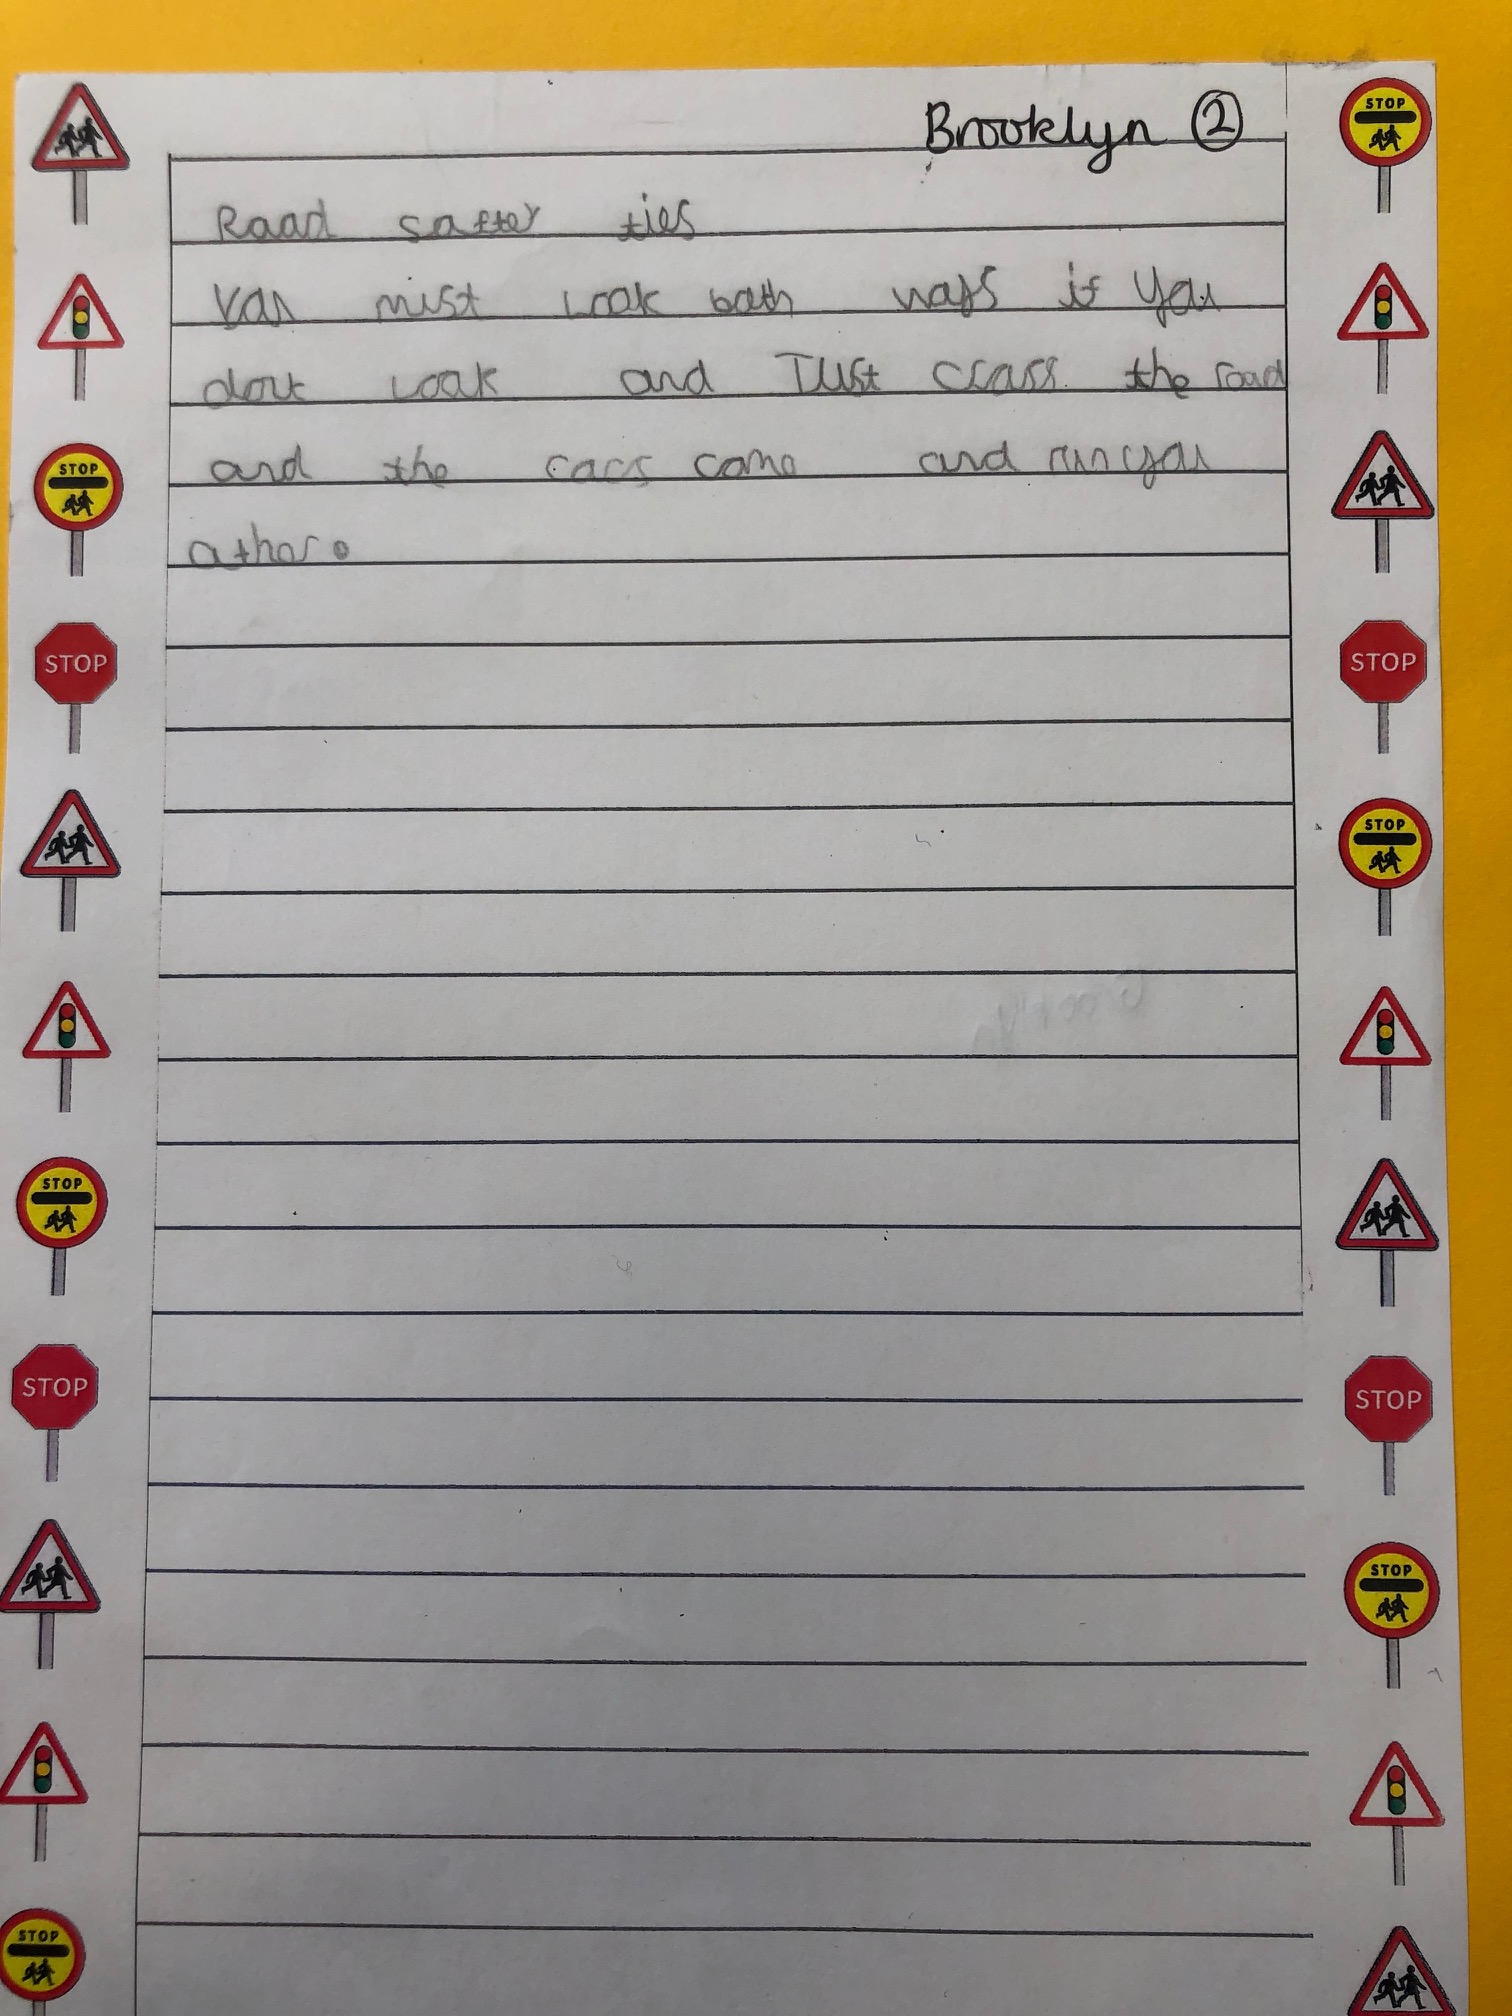 Brooklyn 2
Road saftey ties
You mist look both ways if you
dont look and Just cross the road
and the cars come and run you
other.
STOP
STOP
STOP
STOP
STOP
STOP
STOP
STOP
STOP